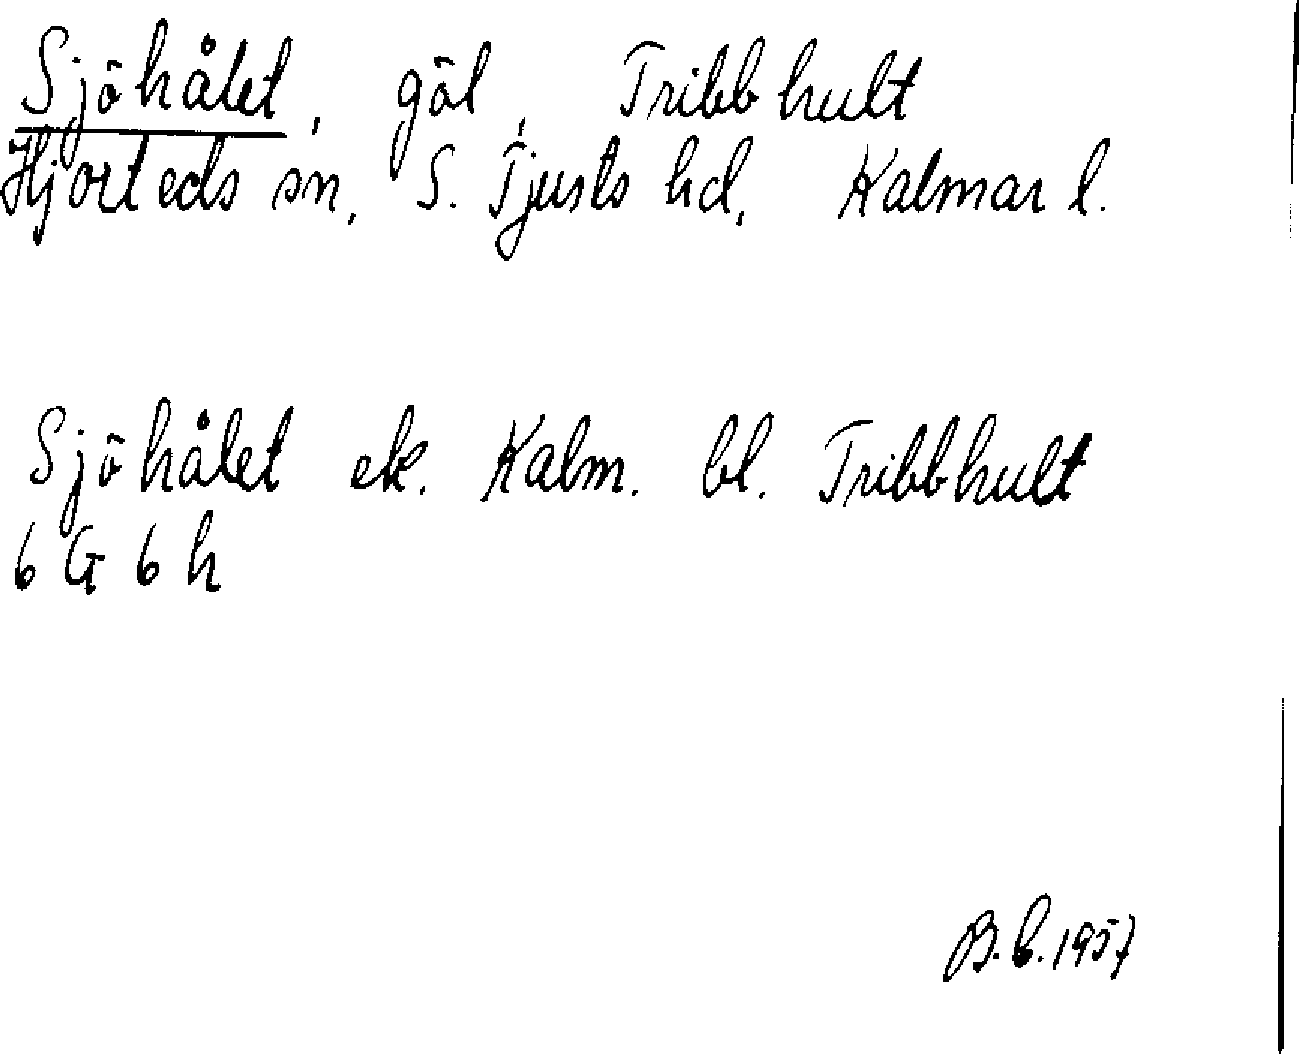 Sjöhålet, göl, Tribbhult
Hjorteds sn, S. Tjusts hd, Kalmar l.
Sjöhålet ek. Kalm. bl. Tribbhult
6 G 6 h
B.b. 1957